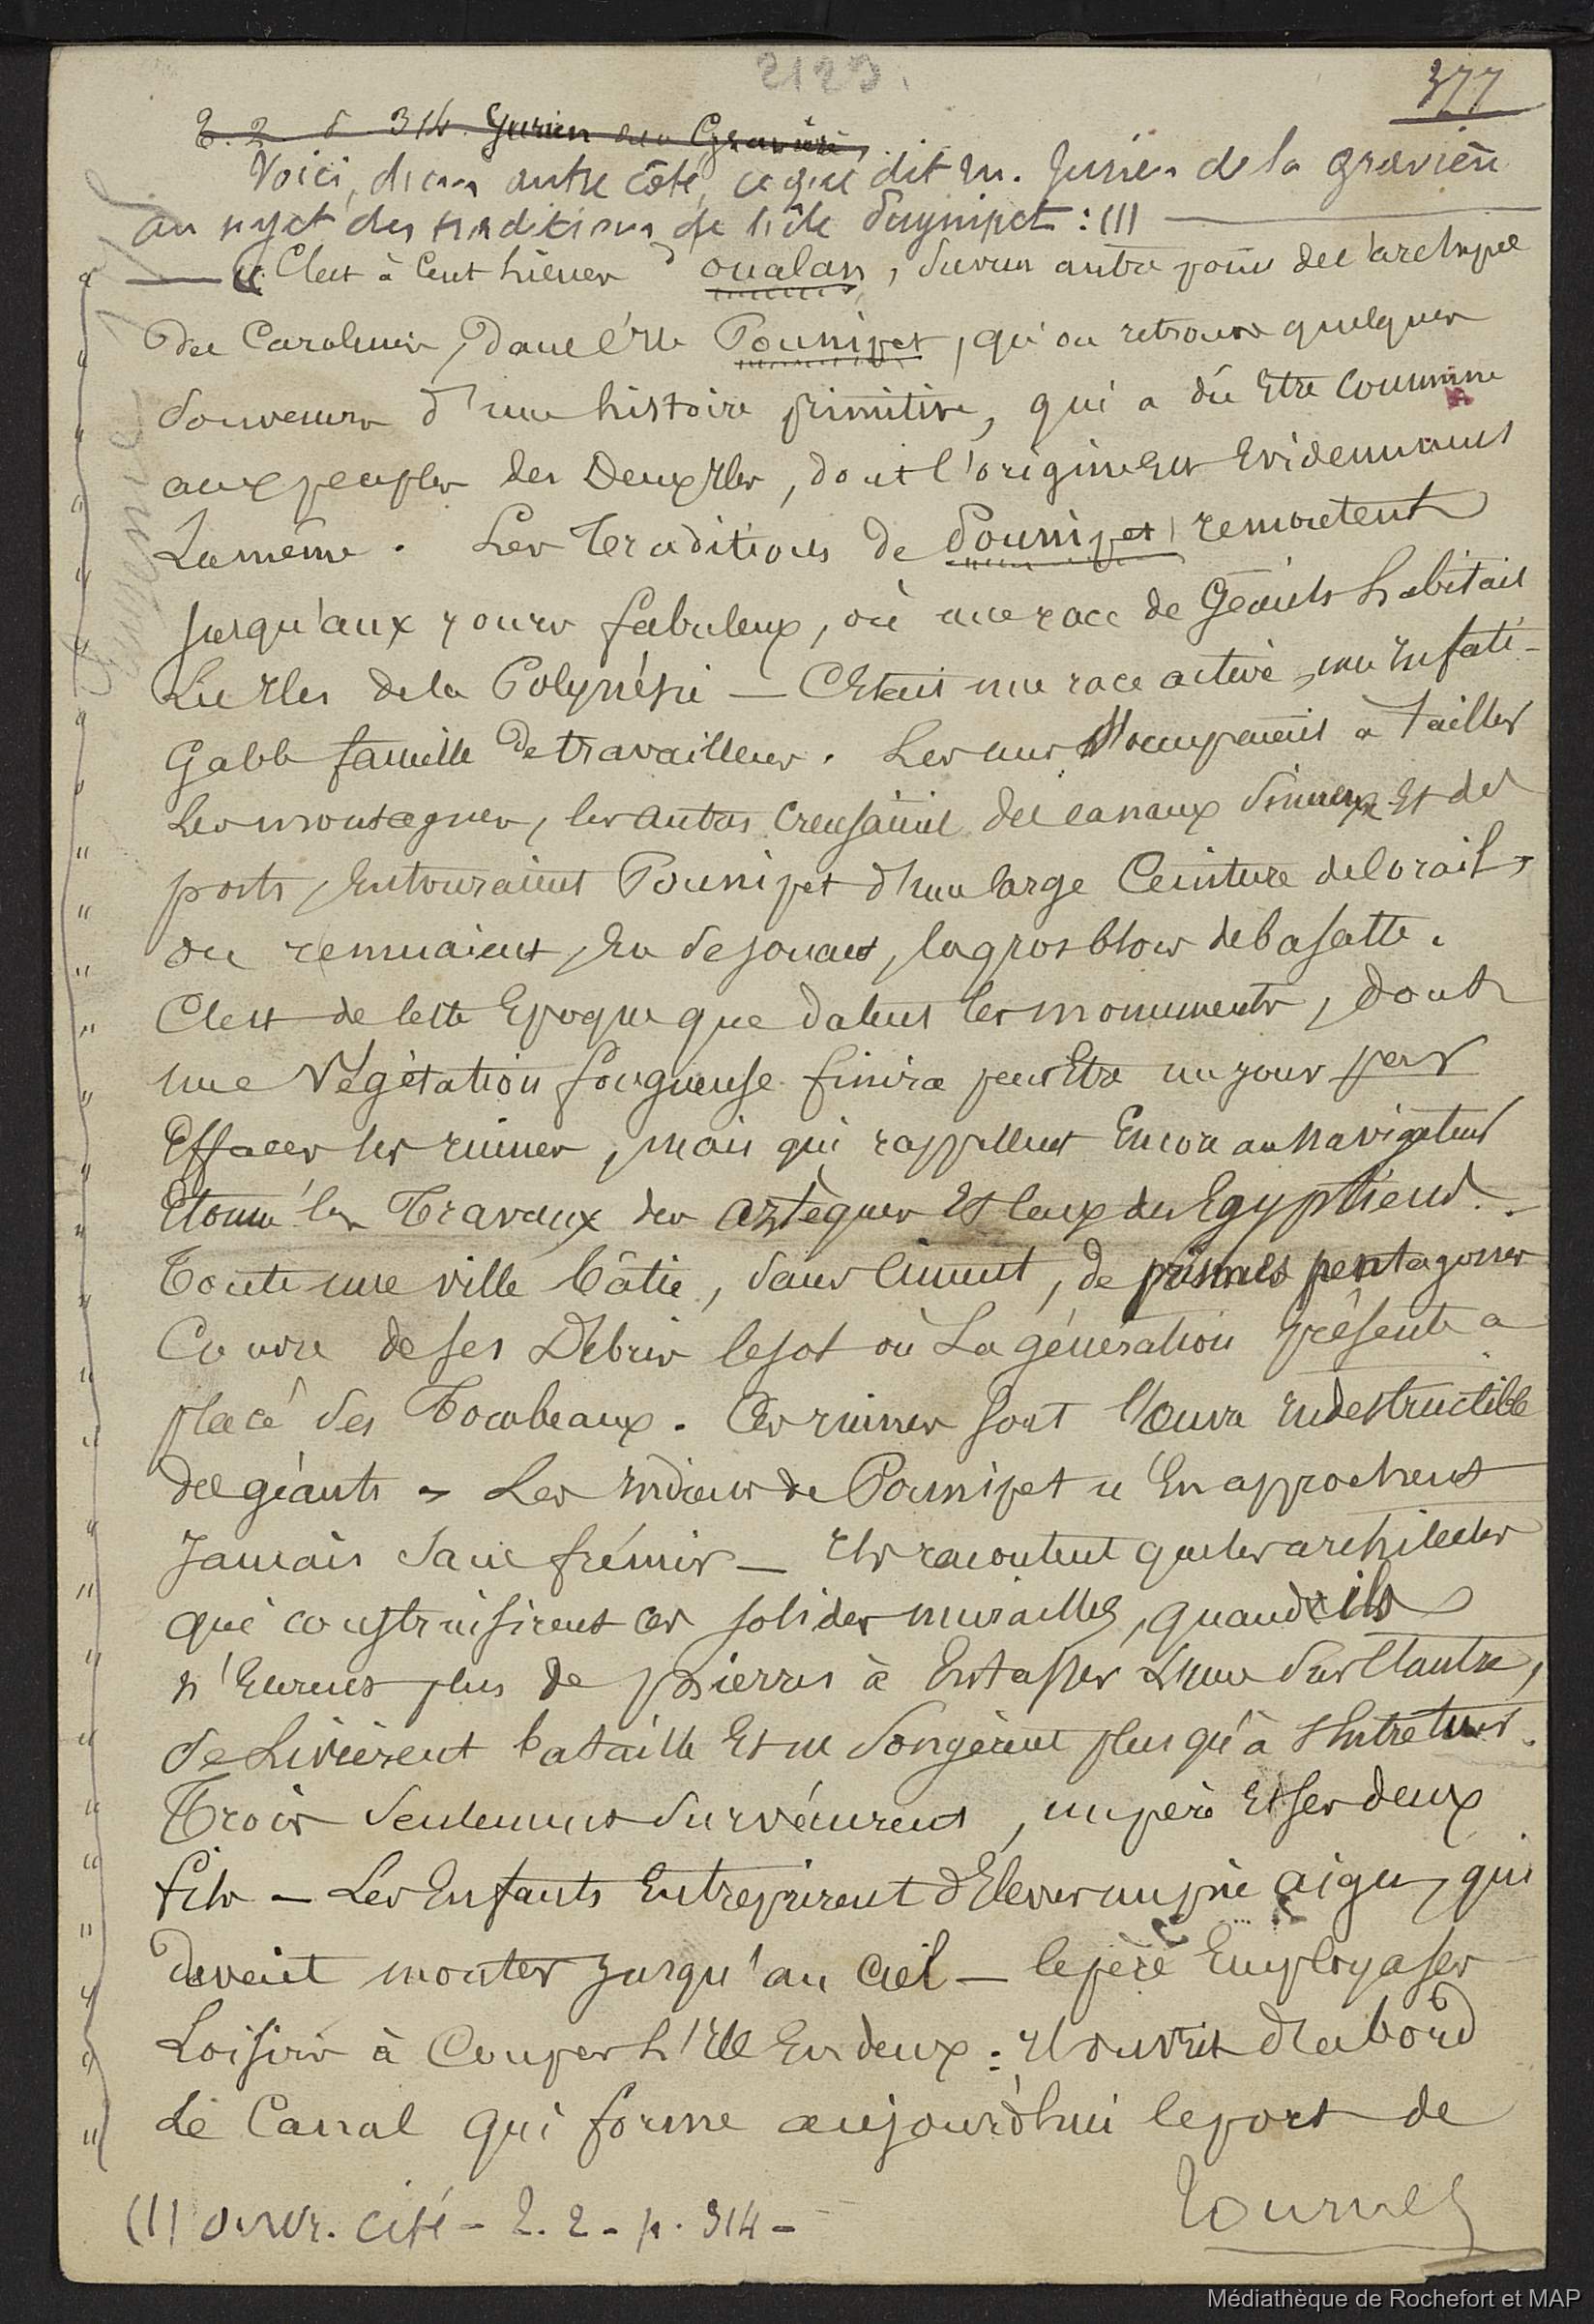 2123.
377
T. 2 p 314. Jurien de la Gravière,
Voici, d'un autre côté, ce que dit M. Jurien de la Gravière
au sujet des traditions de l'île Pouynipet : (1)
« C'est à Cent lieues d'Oualan, sur un autre point de l'archipel
des Carolines, dans l'Ile Pounipet, qu'on retrouve quelques
souvenirs d'une histoire primitive, qui a dû Etre Commune
aux peuples des Deux Iles, dont l'origine Est Evidemment
La même. Les Traditions de Pounipet remontent
jusqu'aux jours fabuleux, où une race de Géants habitait
Les Iles de la Polynésie — C'Etait une race active, une Infati-
Gable famille de travailleurs. Les uns s'occupaient à Tailler
Les montagnes, les autres Creusaient des canaux sinueux Et des
ports, Entouraient Pounipet d'une large Ceinture de Corail,
ou remuaient, En se jouant, les gros blocs de basalte.
C'est de cette Epoque que datent les monuments, dont
une Végétation fougueuse finira peut Etre un jour par
Effacer les ruines, mais qui rappellent Encore au navigateur
Etonné les Travaux des aztèques Et ceux des Egyptiens.
Toute une ville bâtie, sans ciment, de prismes pentagones
Couvre de ses Débris le sol où La génération présente a
placé ses Tombeaux. Ces ruines sont l'œuvre Indestructible
des géants - Les Indiens de Pounipet n'En approchent
Jamais sans frémir — Ils racontent que les architectes
qui construisirent ces solides murailles, quand ils
n'Eurent plus de pierres à Entasser L'une sur l'autre,
se Livrèrent bataille Et ne songèrent plus qu'à s'Entretuer.
Trois seulement survécurent, un père Et ses deux
fils — Les Enfants Entreprirent d'Elever un pic aigu, qui
devait monter jusqu'au Ciel — le père Employa ses
Loisirs à Couper L'Ile En deux : Il ouvrit d'abord
Le Canal qui forme aujourd'hui le port de
(1) ouvr. cité - T. 2 - p. 314 -
Tournez
Médiathèque de Rochefort et MAP